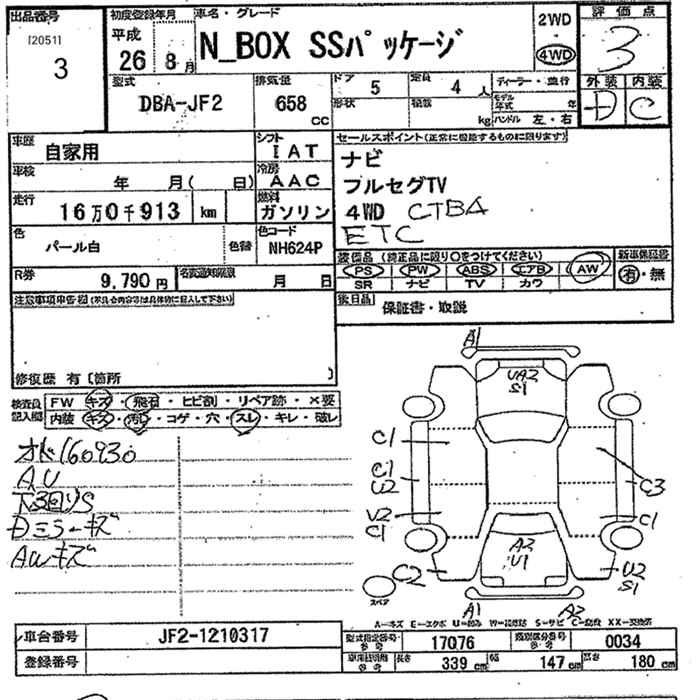 出品番号 初度登録年月 車名・グレード 2WD 評価点
[2051] 平成 4WD 3
3 26 8月 N_BOX SSパッケージ 外装 内装
型式 排気量 ドア 5 定員 4人 ディーラー・並行 D C
DBA-JF2 658 cc 形状 積載 kg モデル年式 年
ハンドル 左・右
車歴 自家用 シフト IAT セールスポイント(正常に機能するものに限ります)
車検 年 月( 日) 冷房 AAC ナビ
走行 16万0千913 km 燃料 ガソリン フルセグTV
4WD CTBA
ETC
色 パール白 色替 色コード NH624P 装備品 (純正品に限り○をつけてください) 新車保証書
PS PW ABS エアB AW 有・無
SR ナビ TV カワ
R券 9,790円 名義変更期限 月 日 後日品 保証書・取説
注意事項申告欄(不具合内容等は具体的に記入して下さい)
修復歴 有〔箇所 〕
検査員記入欄 FW キズ・飛石・ヒビ割・リペア跡・×要
内装 キズ・汚れ・コゲ・穴・スレ・キレ・破レ
160930
AU
下3回りS
Dミラーキズ
AWキズ
A1
UA2
S1
C1
C1
U2
C3
U2
C1
C1
A2
U1
C2
U2
S1
スペア
A1 A2
A-キズ E-エクボ U-凹み W-補修跡 S-サビ C-腐食 XX-交換済
車台番号 JF2-1210317 型式指定番号・参考 17076 類別区分番号・参考 0034
登録番号 長さ 339cm 幅 147cm 高さ 180cm